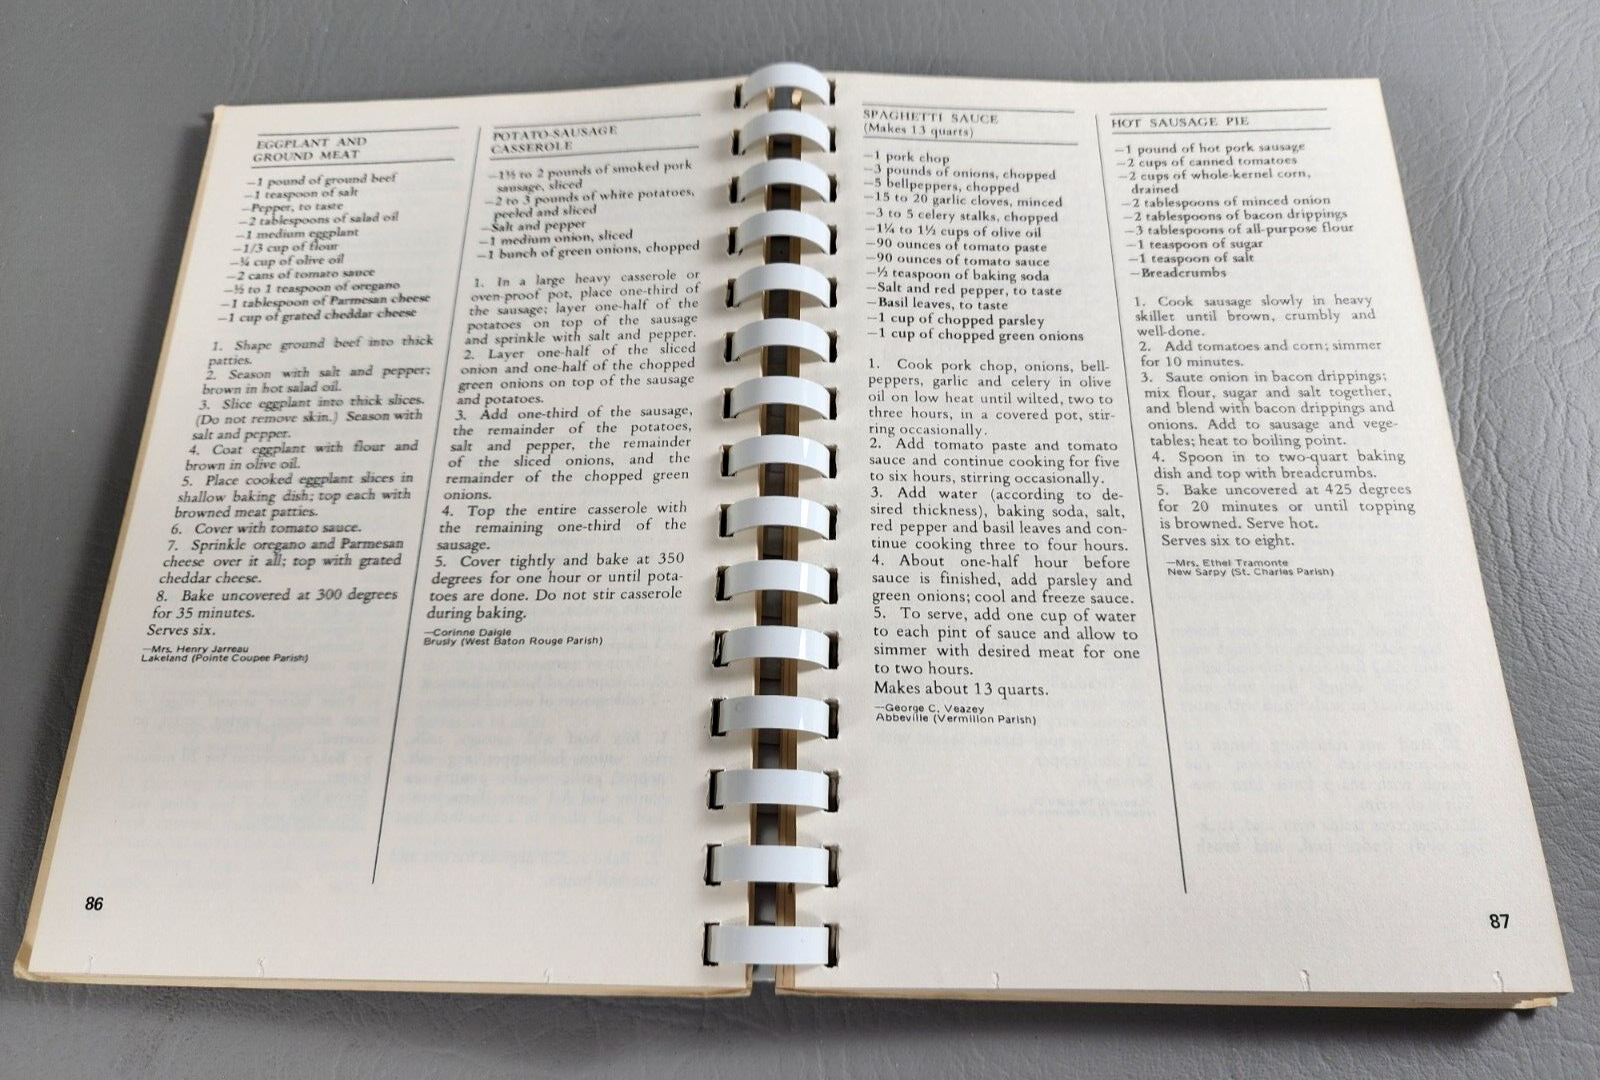 EGGPLANT AND
GROUND MEAT
—1 pound of ground beef
—1 teaspoon of salt
—Pepper, to taste
—2 tablespoons of salad oil
—1 medium eggplant
—1/3 cup of flour
—¾ cup of olive oil
—2 cans of tomato sauce
—½ to 1 teaspoon of oregano
—1 tablespoon of Parmesan cheese
—1 cup of grated cheddar cheese
1. Shape ground beef into thick
patties.
2. Season with salt and pepper;
brown in hot salad oil.
3. Slice eggplant into thick slices.
(Do not remove skin.) Season with
salt and pepper.
4. Coat eggplant with flour and
brown in olive oil.
5. Place cooked eggplant slices in
shallow baking dish; top each with
browned meat patties.
6. Cover with tomato sauce.
7. Sprinkle oregano and Parmesan
cheese over it all; top with grated
cheddar cheese.
8. Bake uncovered at 300 degrees
for 35 minutes.
Serves six.
—Mrs. Henry Jarreau
Lakeland (Pointe Coupee Parish)
POTATO-SAUSAGE
CASSEROLE
—1½ to 2 pounds of smoked pork
sausage, sliced
—2 to 3 pounds of white potatoes,
peeled and sliced
—Salt and pepper
—1 medium onion, sliced
—1 bunch of green onions, chopped
1. In a large heavy casserole or
oven-proof pot, place one-third of
the sausage; layer one-half of the
potatoes on top of the sausage
and sprinkle with salt and pepper.
2. Layer one-half of the sliced
onion and one-half of the chopped
green onions on top of the sausage
and potatoes.
3. Add one-third of the sausage,
the remainder of the potatoes,
salt and pepper, the remainder
of the sliced onions, and the
remainder of the chopped green
onions.
4. Top the entire casserole with
the remaining one-third of the
sausage.
5. Cover tightly and bake at 350
degrees for one hour or until pota-
toes are done. Do not stir casserole
during baking.
—Corinne Daigle
Brusly (West Baton Rouge Parish)
86
SPAGHETTI SAUCE
(Makes 13 quarts)
—1 pork chop
—3 pounds of onions, chopped
—5 bellpeppers, chopped
—15 to 20 garlic cloves, minced
—3 to 5 celery stalks, chopped
—1¼ to 1½ cups of olive oil
—90 ounces of tomato paste
—90 ounces of tomato sauce
—½ teaspoon of baking soda
—Salt and red pepper, to taste
—Basil leaves, to taste
—1 cup of chopped parsley
—1 cup of chopped green onions
1. Cook pork chop, onions, bell-
peppers, garlic and celery in olive
oil on low heat until wilted, two to
three hours, in a covered pot, stir-
ring occasionally.
2. Add tomato paste and tomato
sauce and continue cooking for five
to six hours, stirring occasionally.
3. Add water (according to de-
sired thickness), baking soda, salt,
red pepper and basil leaves and con-
tinue cooking three to four hours.
4. About one-half hour before
sauce is finished, add parsley and
green onions; cool and freeze sauce.
5. To serve, add one cup of water
to each pint of sauce and allow to
simmer with desired meat for one
to two hours.
Makes about 13 quarts.
—George C. Veazey
Abbeville (Vermilion Parish)
HOT SAUSAGE PIE
—1 pound of hot pork sausage
—2 cups of canned tomatoes
—2 cups of whole-kernel corn,
drained
—2 tablespoons of minced onion
—2 tablespoons of bacon drippings
—3 tablespoons of all-purpose flour
—1 teaspoon of sugar
—1 teaspoon of salt
—Breadcrumbs
1. Cook sausage slowly in heavy
skillet until brown, crumbly and
well-done.
2. Add tomatoes and corn; simmer
for 10 minutes.
3. Saute onion in bacon drippings;
mix flour, sugar and salt together,
and blend with bacon drippings and
onions. Add to sausage and vege-
tables; heat to boiling point.
4. Spoon in to two-quart baking
dish and top with breadcrumbs.
5. Bake uncovered at 425 degrees
for 20 minutes or until topping
is browned. Serve hot.
Serves six to eight.
—Mrs. Ethel Tramonte
New Sarpy (St. Charles Parish)
87